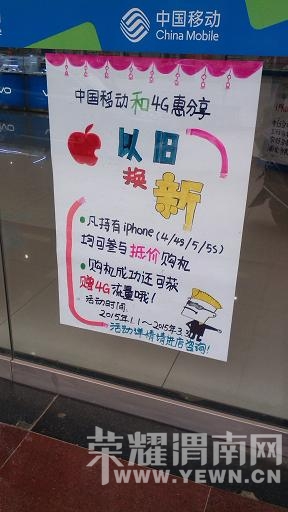 中国移动
China Mobile
中国移动和4G惠分享
以旧
换新
凡持有iphone(4/4s/5/5S)
均可参与抵价购机
购机成功还可获
赠4G流量哦!
活动时间:
2015年1.1~2015年3.31
活动详情请进店咨询!
荣耀渭南网
WWW.YEWN.CN